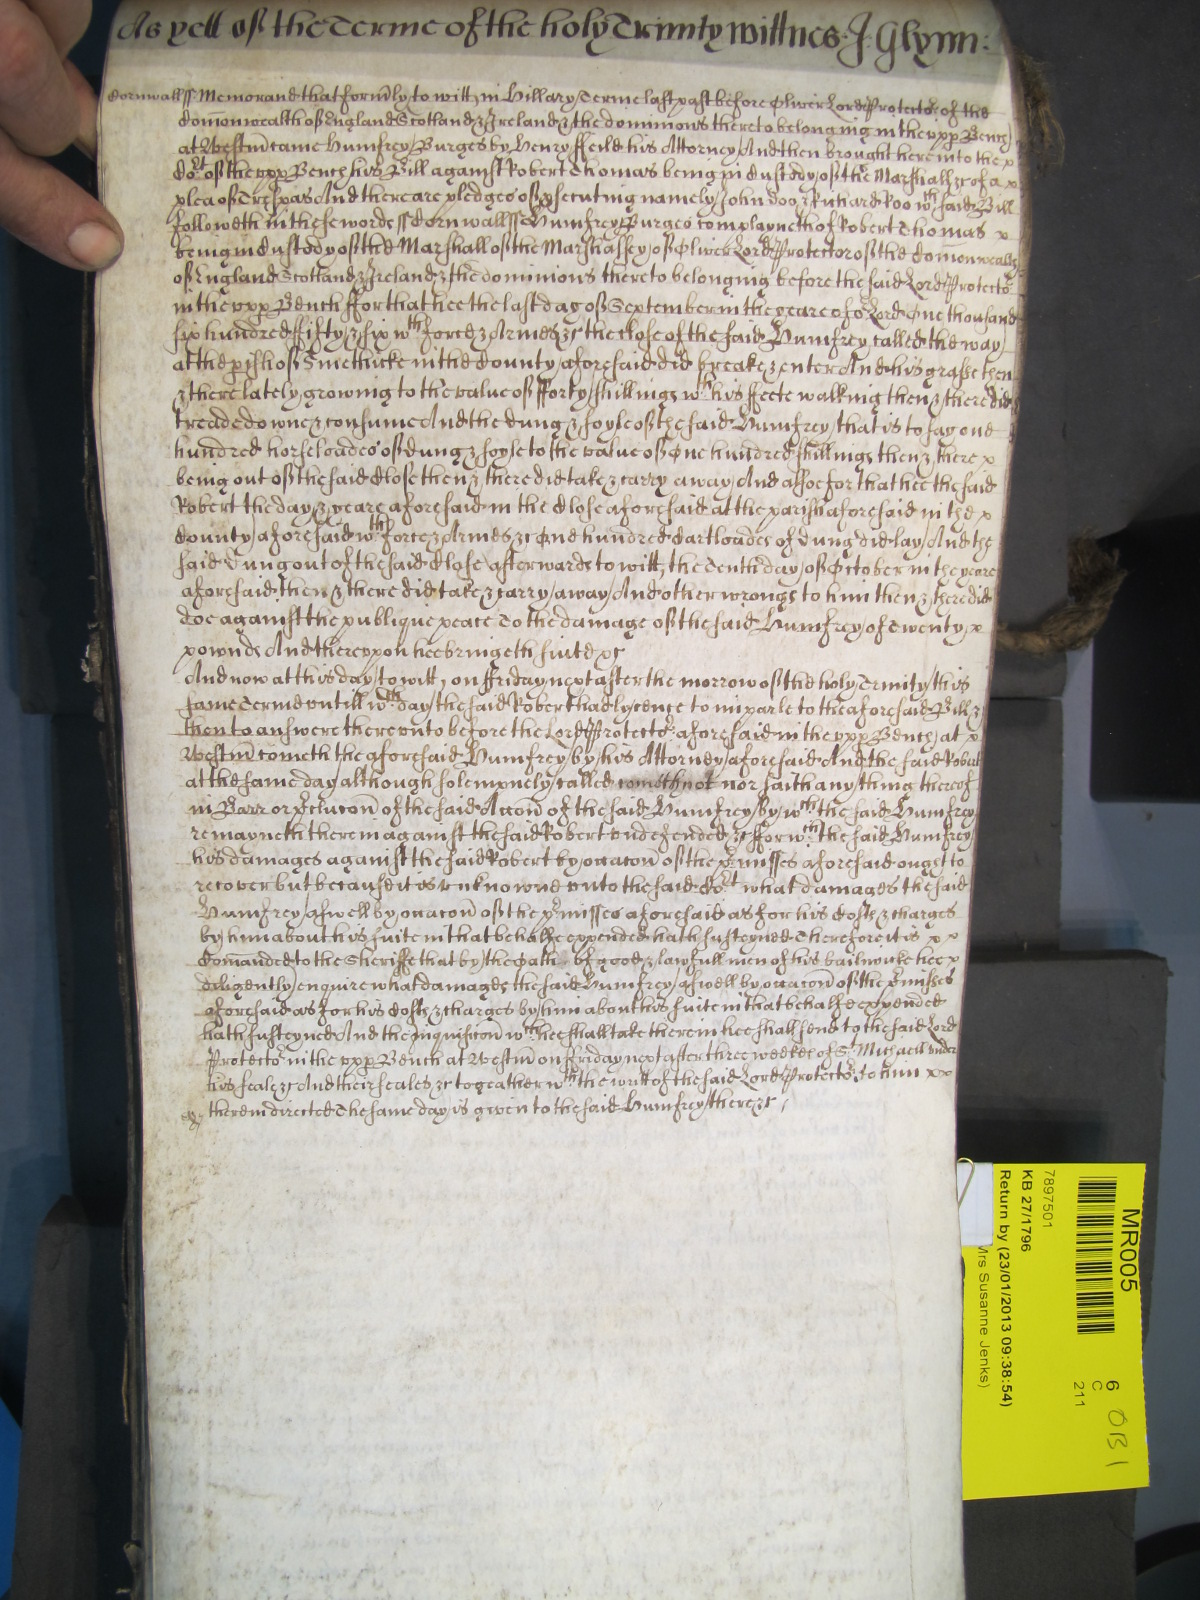 As yett of the Terme of the holy Trinity wittnes J: Glynn:
Cornwall ss Memorand that formly to witt in Hillary Terme last past before Oliver Lord Protector of the
Comonwealth of England Scotland & Ireland & the dominions thereto belonging in the vpp Bench
at Westm came Humfrey Burges by Henry ffeild his Attorney And then brought here into the x
Cort of the vpp Bench his Bill against Robert Thomas being in Custody of the Marshall &c of a x
plea of Trespas And there are pledges of psecuting namely John Doo & Richard Roo wch said Bill
followeth in these words ss Cornwall ss Humfrey Burges complayneth of Robert Thomas x
being in Custody of the Marshall of the Marshalsey of Oliver Lord Protector of the Comonwealth
of England Scotland & Ireland & the dominions thereto belonging before the said Lord Protector
in the vpp Bench ffor that hee the last day of September in the yeare of or Lord One thousand
six hundred ffifty & six wth force & Armes &c the Close of the said Humfrey called the way
at the pish of Smethicke in the County aforesaid did breake & enter And his grasse then
& there lately growing to the value of fforty shillings wth his feete walking then & there did
treade downe & consume And the dung & soyle of the said Humfrey that is to say one
hundred horseloades of dung & soyle to the value of One hundred shillings then & there x
being out of the said Close then & there did take & carry away And alsoe for that hee the said
Robert the day & yeare aforesaid in the Close aforesaid at the parish aforesaid in the x
County aforesaid wth force & Armes &c One hundred Cartloades of dung did lay And the
said dung out of the said Close afterwards to witt, the Tenth day of October in the yeare
aforesaid then & there did take & carry away And other wrongs to him then & there did
doe against the publique peace To the damage of the said Humfrey of Twenty x
pownds And thereuppon hee bringeth suite &c
And now at this day to witt, on ffriday next after the morrow of the holy Trinity this
same Terme vntill wch day the said Robert had lycence to imparle to the aforesaid Bill &
then to answere therevnto before the Lord Protector aforesaid in the vpp Bench at x
Westm cometh the aforesaid Humfrey by his Attorney aforesaid And the said Robert
at the same day although solempnely called cometh not nor saith any thing thereof
in Barr or pclucon of the said Accon of the said Humfrey By wch the said Humfrey
remayneth therein against the said Robert vndefended &c fforwch the said Humfrey
his damages against the said Robert by occacon of the pmisses aforesaid ought to
recover but because it is vnknowne vnto the said Cort what damages the said
Humfrey aswell by occacon of the pmisses aforesaid as for his Costs & charges
by him about his suite in that behalfe expended hath susteyned Therefore it is x x
Comanded to the Sheriffe that by the Oath of good & lawfull men of his bailiwicke hee x
diligently enquire what damages the said Humfrey aswell by occacon of the pmisses
aforesaid as for his Costs & charges by him about his suite in that behalfe expended
hath susteyned And the Inquisicon wch hee shall take therein hee shall send to the said Lord
Protector in the vpp Bench at Westm on ffriday next after three weekes of St Michaell vnder
his seale &c And their seales &c togeather wth the writt of the said Lord Protector to him x x
therein directed The same day is given to the said Humfrey there &c
MR005
6
C
211
OB 1
7897501
KB 27/1796
Return by (23/01/2013 09:38:54)
Mrs Susanne Jenks)